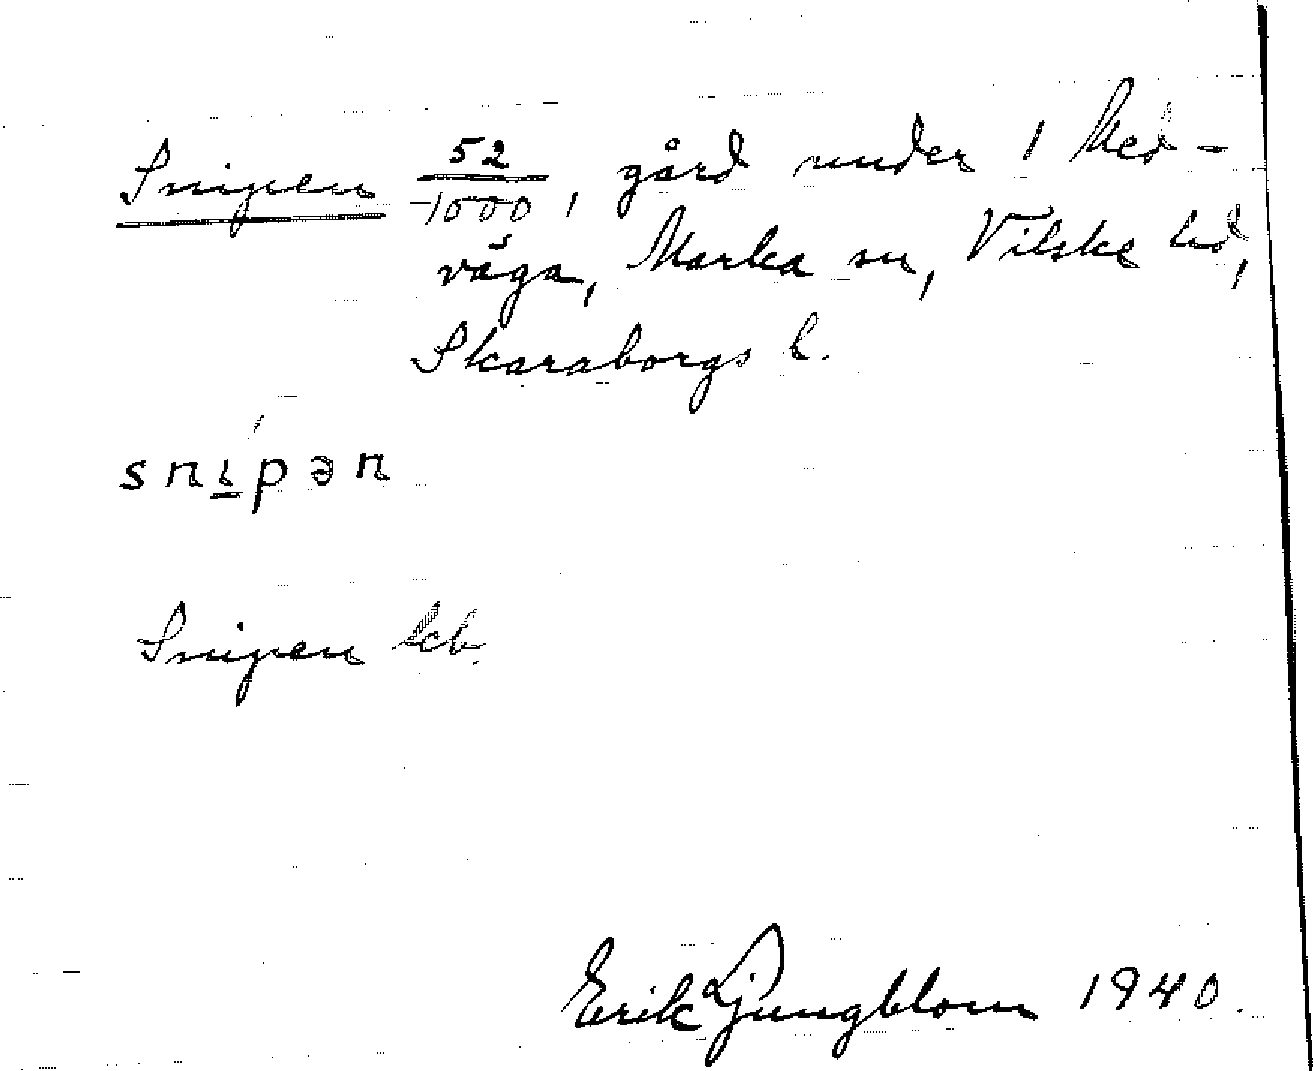 Snipen 52/1000, gård under 1 Med-
våga, Marka sn, Vilske hd,
Skaraborgs l.
snipən
Snipen Jeb.
Erik Ljungblom 1940.